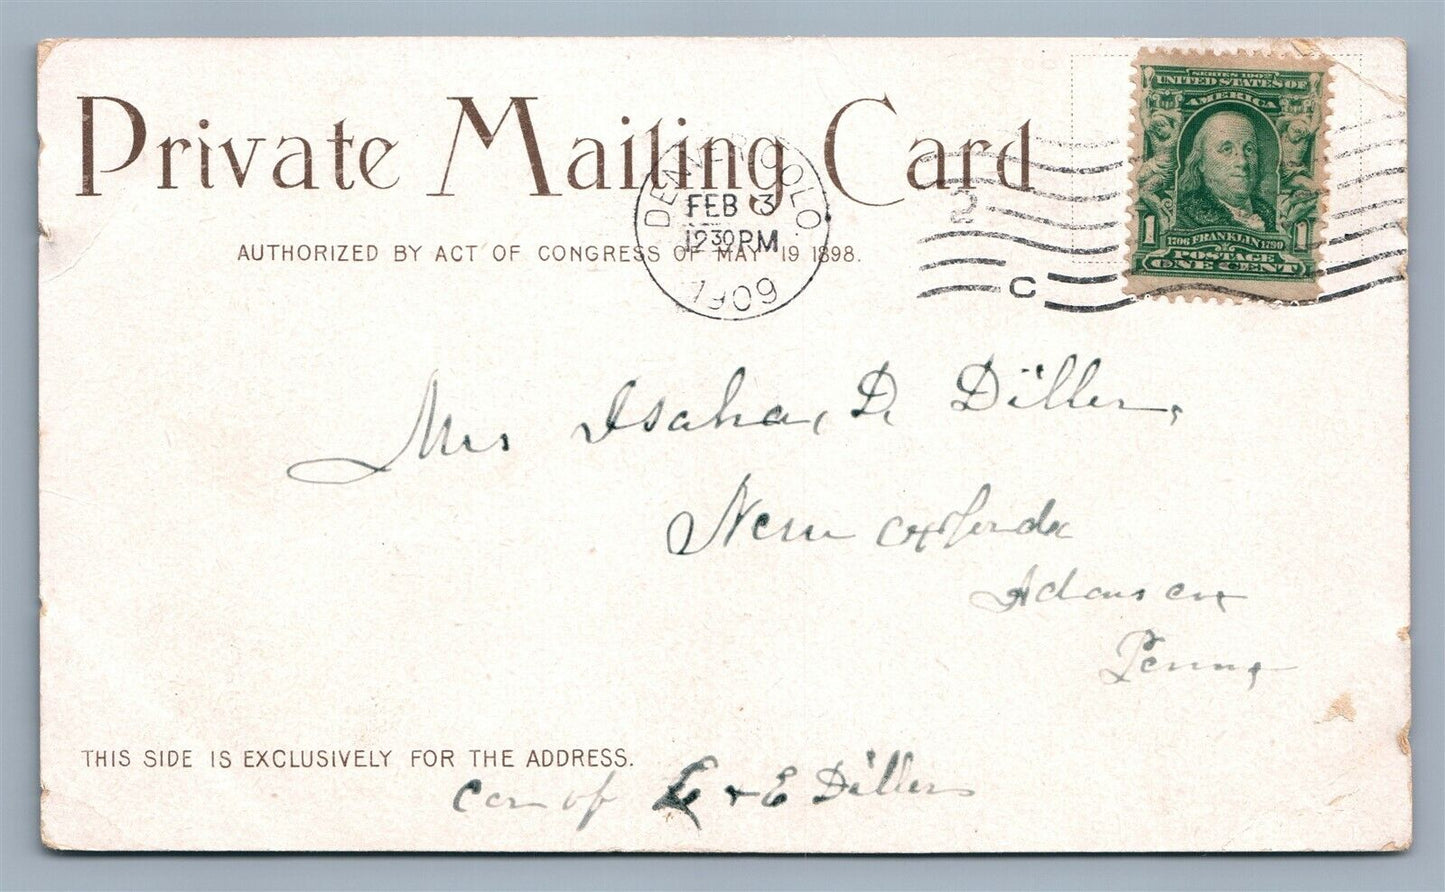 Private Mailing Card
AUTHORIZED BY ACT OF CONGRESS OF MAY 19 1898.
DENVER COLO.
FEB 3
12 30 PM
1909
2
C
SERIES 1902
UNITED STATES OF
AMERICA
1 1
1706 FRANKLIN 1790
POSTAGE
ONE CENT
Mrs Isaha, D. Diller,
New oxford
Adams co
Penna
THIS SIDE IS EXCLUSIVELY FOR THE ADDRESS.
of & E Dillers